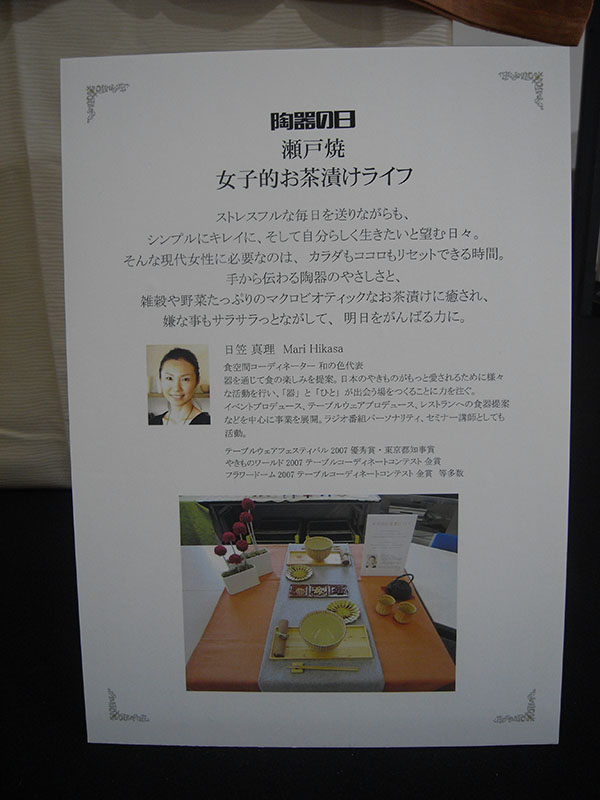 陶器の日
瀬戸焼
女子的お茶漬けライフ
ストレスフルな毎日を送りながらも、
シンプルにキレイに、そして自分らしく生きたいと望む日々。
そんな現代女性に必要なのは、カラダもココロもリセットできる時間。
手から伝わる陶器のやさしさと、
雑穀や野菜たっぷりのマクロビオティックなお茶漬けに癒され、
嫌な事もサラサラっとながして、明日をがんばる力に。
日笠 真理 Mari Hikasa
食空間コーディネーター 和の色代表
器を通じて食の楽しみを提案。日本のやきものがもっと愛されるために様々
な活動を行い、「器」と「ひと」が出会う場をつくることに力を注ぐ。
イベントプロデュース、テーブルウェアプロデュース、レストランへの食器提案
などを中心に事業を展開。ラジオ番組パーソナリティ、セミナー講師としても
活動。
テーブルウェアフェスティバル 2007 優秀賞・東京都知事賞
やきものワールド 2007 テーブルコーディネートコンテスト 金賞
フラワードーム 2007 テーブルコーディネートコンテスト 金賞 等多数